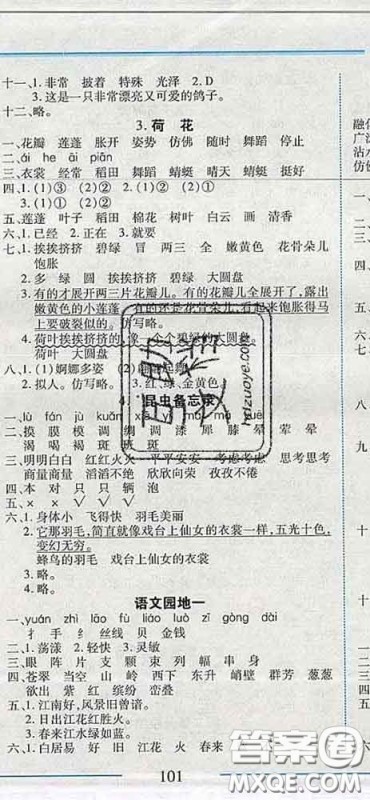 十一、1.非常 披着 特殊 光泽 2.D
3.这是一只非常漂亮又可爱的鸽子。
十二、略。
3.荷 花
一、花瓣 莲蓬 胀开 姿势 仿佛 随时 舞蹈 停止
二、ái he ài piān
三、衣裳 经常 稻田 舞蹈 蜻蜓 晴天 蜻蜓 挺好
四、1.(1)③ (2)② 2.(1)① (2)②
五、莲蓬 叶子 稻田 棉花 树叶 白云 画 清香
六、1.已经 2.正在 3.就要
七、1.挨挨挤挤 碧绿 冒 两三 全 嫩黄色 花骨朵儿
饱胀
2.多 绿 圆 挨挨挤挤 碧绿 大圆盘
3.有的才展开两三片花瓣儿。有的花瓣儿全展开了,露出
嫩黄色的小莲蓬。有的还是花骨朵儿,看起来饱胀得马
上要破裂似的。仿写略。
4.荷叶挨挨挤挤的,像一个个碧绿的大圆盘。
荷叶 大圆盘
八、1.(1)婀娜多姿
2.拟人。仿写略。 3.红、绿、金黄色。
昆虫备忘录
一、lù fán jù kuàn
二、摸 膜 模 调 绸 稠 漆 漆 犀 膝 晕 荤 晕
渴 喝 褐 斑 班 斑
三、明明白白 红红火火 平平安安 考虑考虑 思考思考
商量商量 滔滔不绝 欣欣向荣 孜孜不倦
四、本 对 只 只 辆 泡
五、× √ √ √ ×
六、1.身体小 飞得快 羽毛美丽
2.它那羽毛,简直就像戏台上仙女的衣裳一样,五光十色,
变幻无穷。
蜂鸟的羽毛 戏台上仙女的衣裳
3.略。
4.略。
语文园地一
一、yuán zhì lāo fù liáo luò zī gòng dài
扌 手 纟 丝线 贝 金钱
二、1.荡漾 2.轻快 3.灵敏
三、眼 阵 片 支 颗 束 列 幅 串 身
四、苍翠 当空 山 岭 西下 东升 峭壁 群芳 葱葱
欲出 紫 红 缤纷 峦叠
五、1.江南好,风景旧曾谙。
2.日出江花红胜火。
3.春来江水绿如蓝。
六、1.白居易 好 旧 江花 火 春来 江水
101
答案圈
MXQE.COM